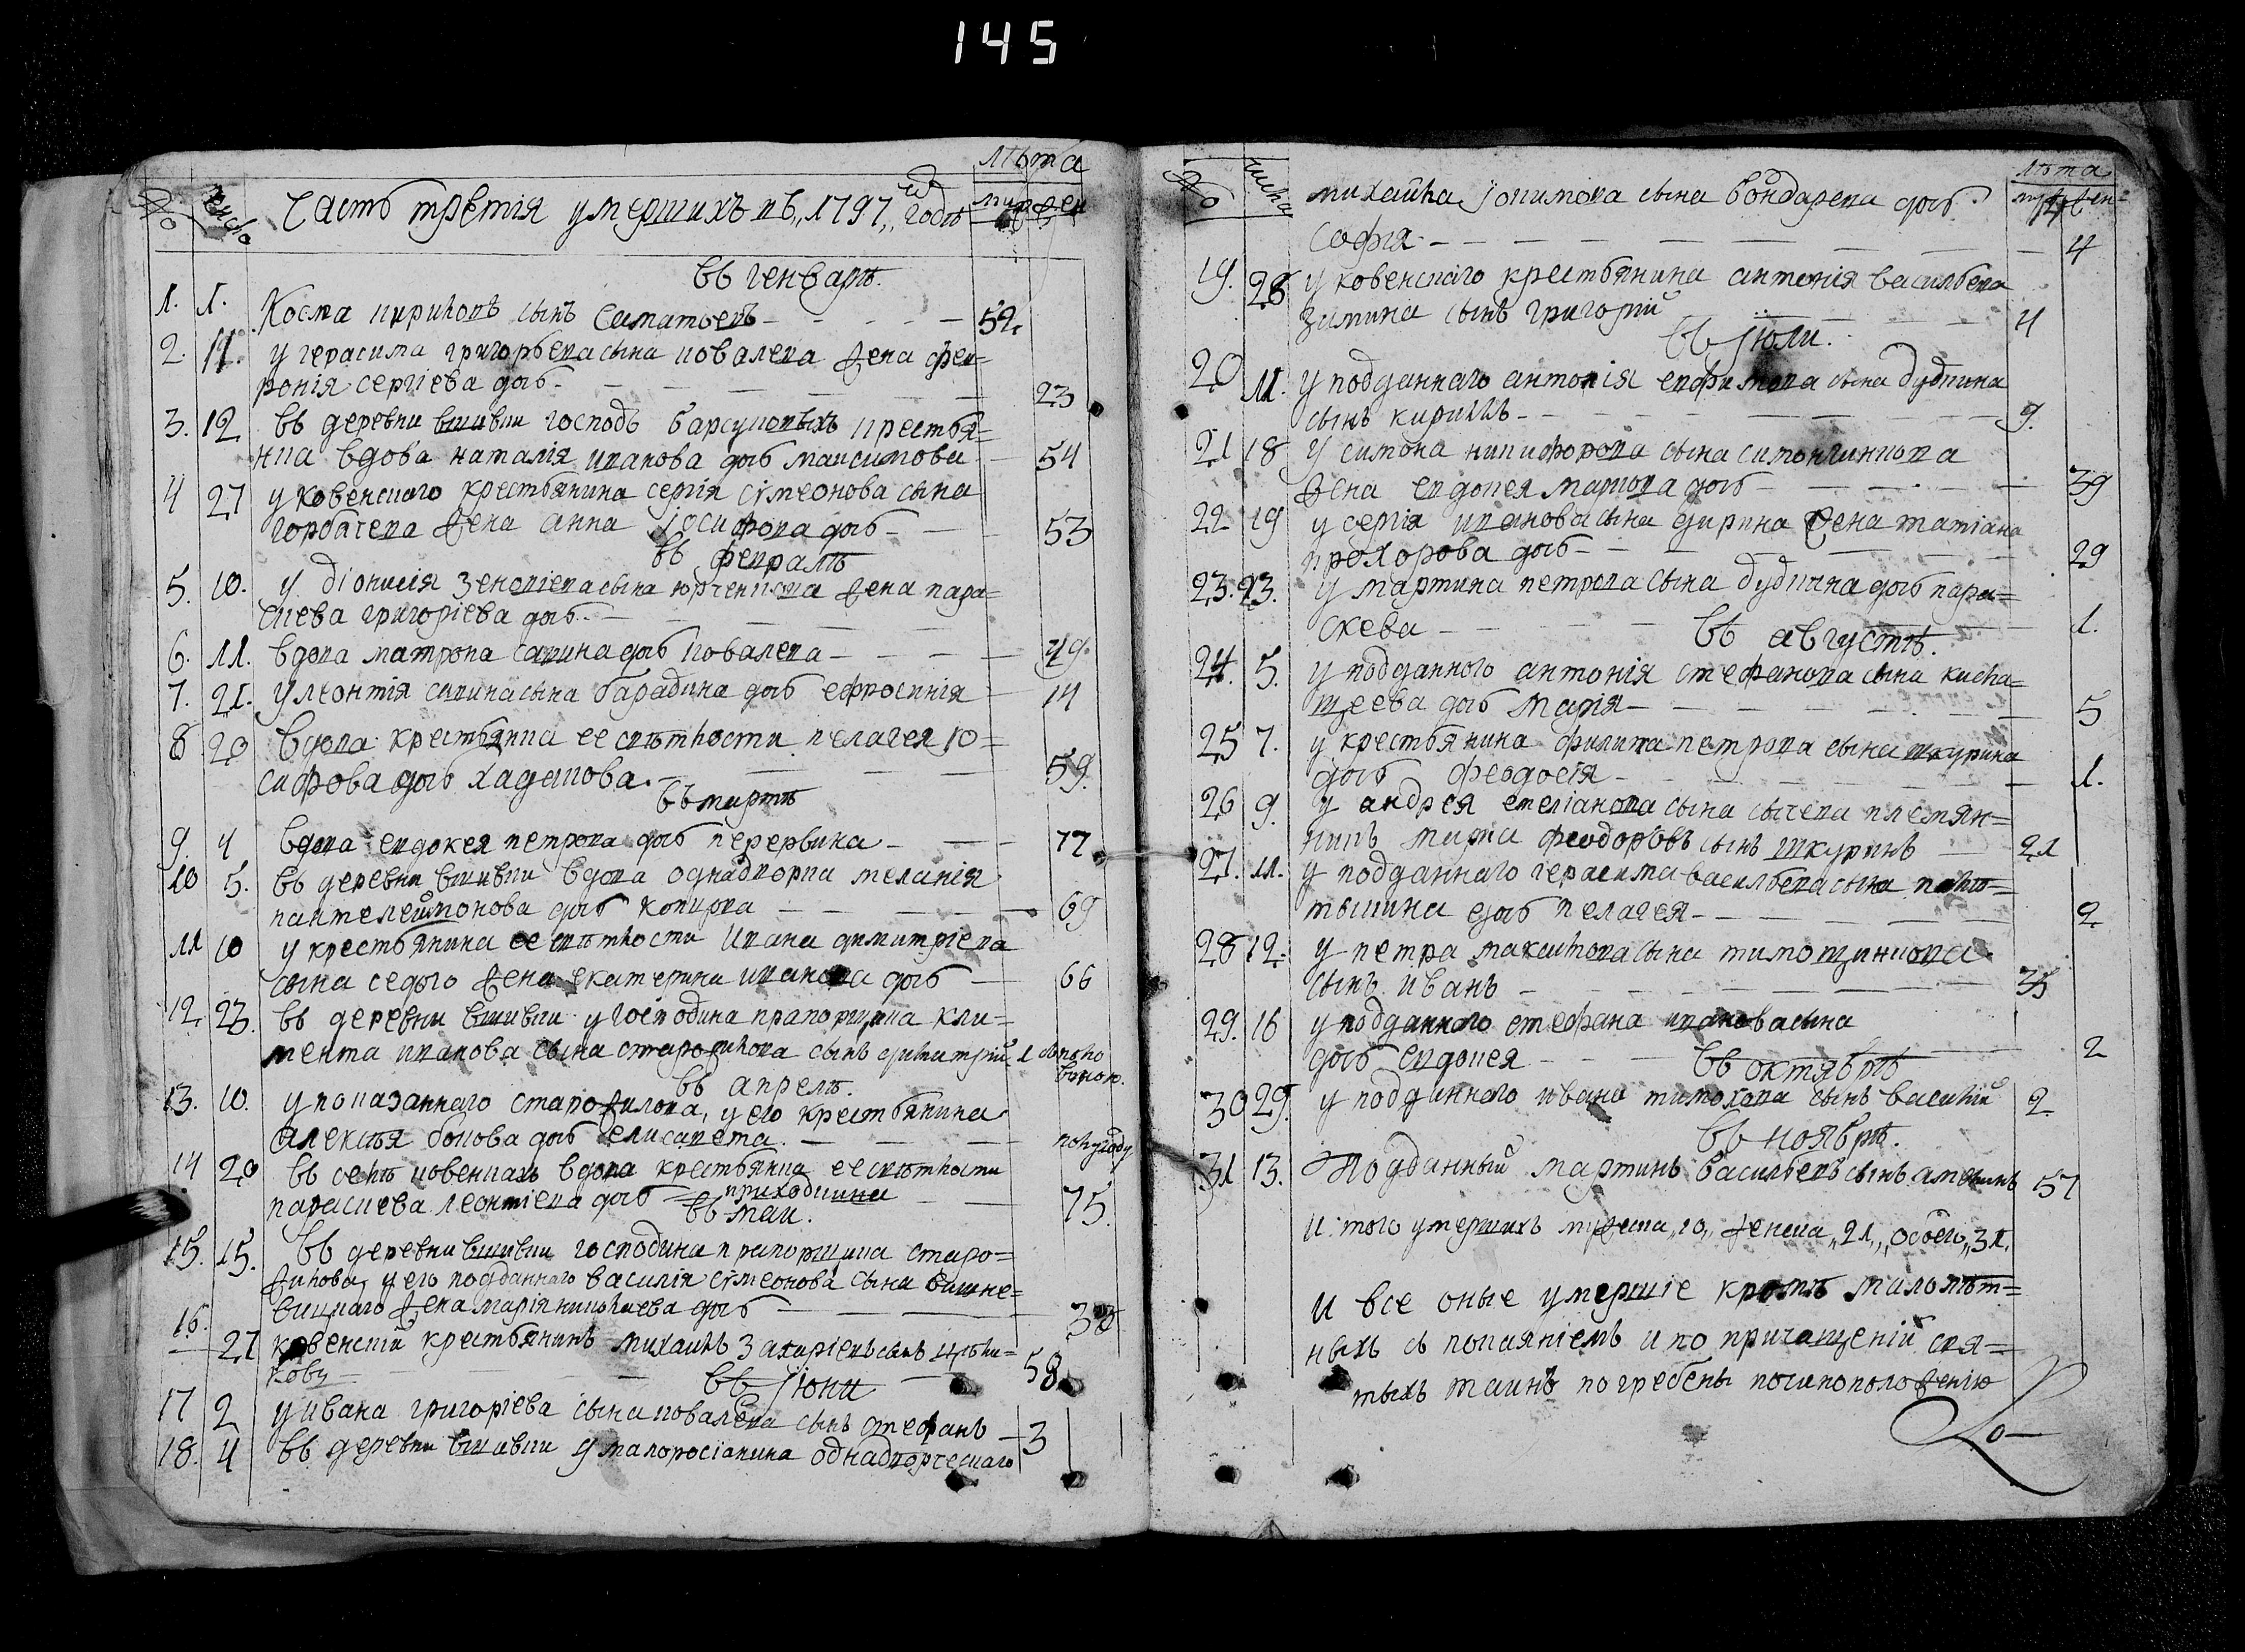 145
лѣта
№ число Часть третія умершихъ въ „1797„ годѣ муж жен
въ генварѣ.
1. 1. Косма кириловъ сынъ Саматоевъ 52.
2. 11. у герасима григорьева сына ковалева жена фев=
ронія сергіева дочь 23
3. 12 въ деревни вшивки господъ барсуковыхъ крестья=
нка вдова наталія иванова дочь максимова 54
4 27 у ковенского крестьянина сергія сѵмеонова сына
горбачева жена анна іосифова дочь 53
въ февралѣ
5. 10. у діонисія зеновіева сына юрченкова жена пара=
скева григоріева дочь
6. 11. вдова матрона савина дочь ковалева 49.
7. 21. у леонтія савина сына барадина дочь ефросинія 14
8 20 вдова крестьянка ее свѣтлости пелагея іо=
сифова дочь хадакова. 59.
въ мартѣ
9. 4 вдова евдокея петрова дочь перервина 77
10 5. въ деревни вшивки вдова однадворка меланія
пантелеймонова дочь 69
11 10 у крестьянина ее свѣтлости ивана димитріева
сына седого жена екатерина иванова дочь 66
12. 23. въ деревни вшивки у господина прапорщика кли=
мента иванова сына старожилова сынъ димитрій 1 споло
виною.
въ апрелѣ.
13. 10. у показаннаго старожилова, у его крестьянина
алексѣя бокова дочь елисавета. полугоду
14 20 въ селѣ ковенкахъ вдова крестьянка ее свѣтлости
параскева леонтіева дочь приходкина 75.
въ маи.
15. 15. въ деревни вшивки господина прапорщика старо=
жилова, у его подданнаго василія сѵмеонова сына вишне=
вицкаго жена марія николаева дочь 38
16. 27 ковенскій крестьянинъ михаилъ захаріевъ сынъ
ковъ 58.
въ іюни
17 2 у ивана григоріева сына ковалева сынъ стефанъ 3
18. 4 въ деревни вшивки у малоросіанина однадворческаго
лѣта
№ число михаила іовимова сына бондарева дочь муж жен=
софія 4
19. 28 у ковенскаго крестьянина антонія васильева
зимина сынъ григорій 4
въ іюли.
20 11. у подданнаго антонія евфимова сына дудкина
сынъ кирилъ 9.
21 18 у симона никифорова сына симончинкова
жена евдокея маркова дочь 39
22 19 у сергія иванова сына дирина жена татіана
прохорова дочь 29
23. 23. у мартина петрова сына дудкина дочь пара=
скева 1.
въ августѣ.
24. 5. у подданного антонія стефанова сына кисла=
щеева дочь марія 5
25 7. у крестьянина филипа петрова сына шкурина
дочь феодосія 1.
26 9. у андрея емеліанова сына сычева племян=
никъ марка феодоровъ сынъ шкуринъ 21
27. 11. у подданнаго герасима васильева сына
тышина дочь пелагея 2
28 12. у петра максимова сына тимощинкова
сынъ иванъ 35
29. 16 у подданного стефана иванова сына
дочь евдокея 2
въ октябрѣ
30 29. у подданного ивана тимохова сынъ василій 2.
въ ноябрѣ.
31 13. Подданный мартинъ васильевъ сынъ аменинъ 57
и того умершихъ мужеска „10„ женска „21„, обоего „31.
и все оные умершіе кромѣ малолѣт=
ныхъ съ покаяніемъ и по причащеній свя=
тыхъ таинъ погребены по чиноположенію